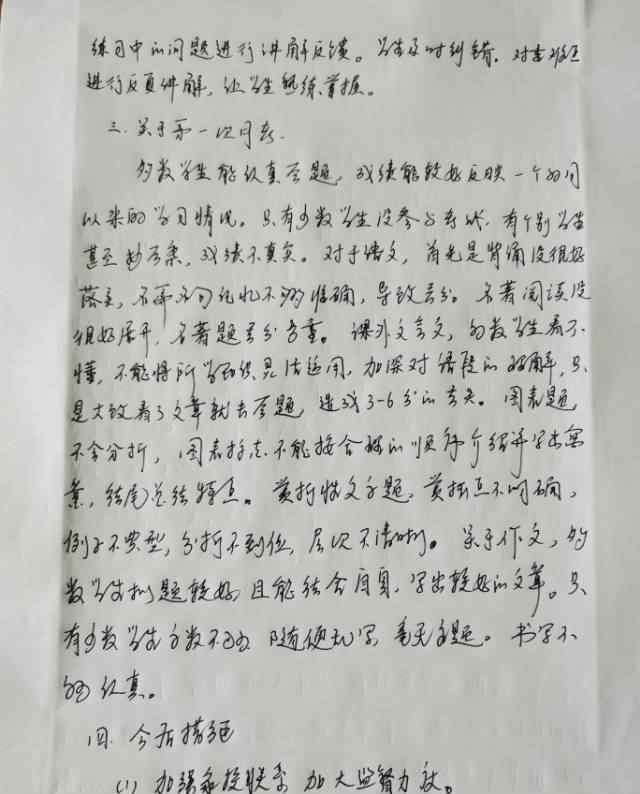 练习中的问题进行讲解反馈。学生及时纠错,对
进行反复讲解,让学生熟练掌握。
三.关于第一次月考.
多数学生能认真答题,成绩能较好反映一个多月
以来的学习情况。只有少数学生没参与考试,有个别学生
甚至抄答案,成绩不真实。对于语文,首先是背诵没很好
落实,名句记忆不够准确,导致丢分。名著阅读没
很好展开,名著题丢分严重。课外文言文,多数学生看不
懂,不能将所学知识灵活运用,加深对语段的理解,只
是大致看了文章就去答题,造成3-6分的丢失。图表题,
不会分析,图表标志不能按合理的顺序介绍并写出寓
意,结尾总结特点。赏析性文字题,赏析点不明确,
例子不典型,分析不到位,层次不清晰。关于作文,多
数学生拟题较好且能结合自身,写出较好的文章。只
有少数学生字数不够,随便乱写,毫无主题。书写不
够认真。
四.今后措施
(1)加强家校联系,加大监督力度。